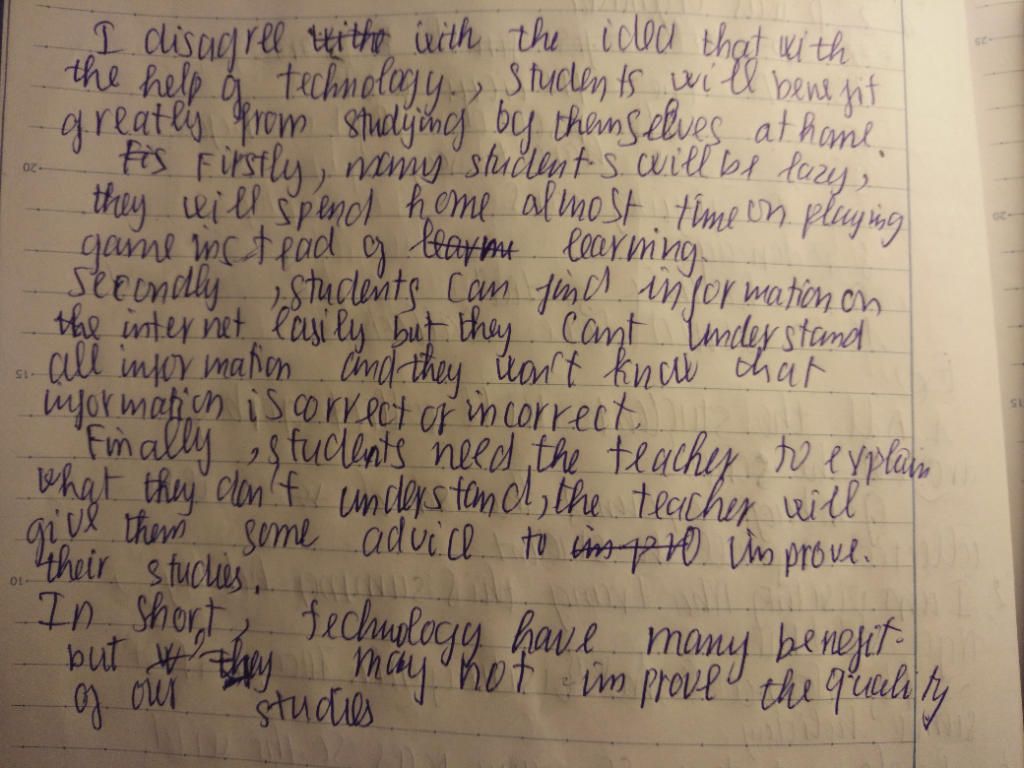 I disagree with with the idea that with
the help of technology, students will benefit
greatly from studying by themselves at home.
Fis Firstly, many students will be lazy,
they will spend home almost time on playing
game instead of learni learning.
Secondly, students can find information on
the internet easily but they can't understand
all information and they won't know that
information is correct or incorrect.
Finally, students need the teacher to explain
what they don't understand, the teacher will
give them some advice to impro improve.
their studies.
In short, technology have many benefit
but they may not improve the quality
of our studies
20
15
10
25
20
15